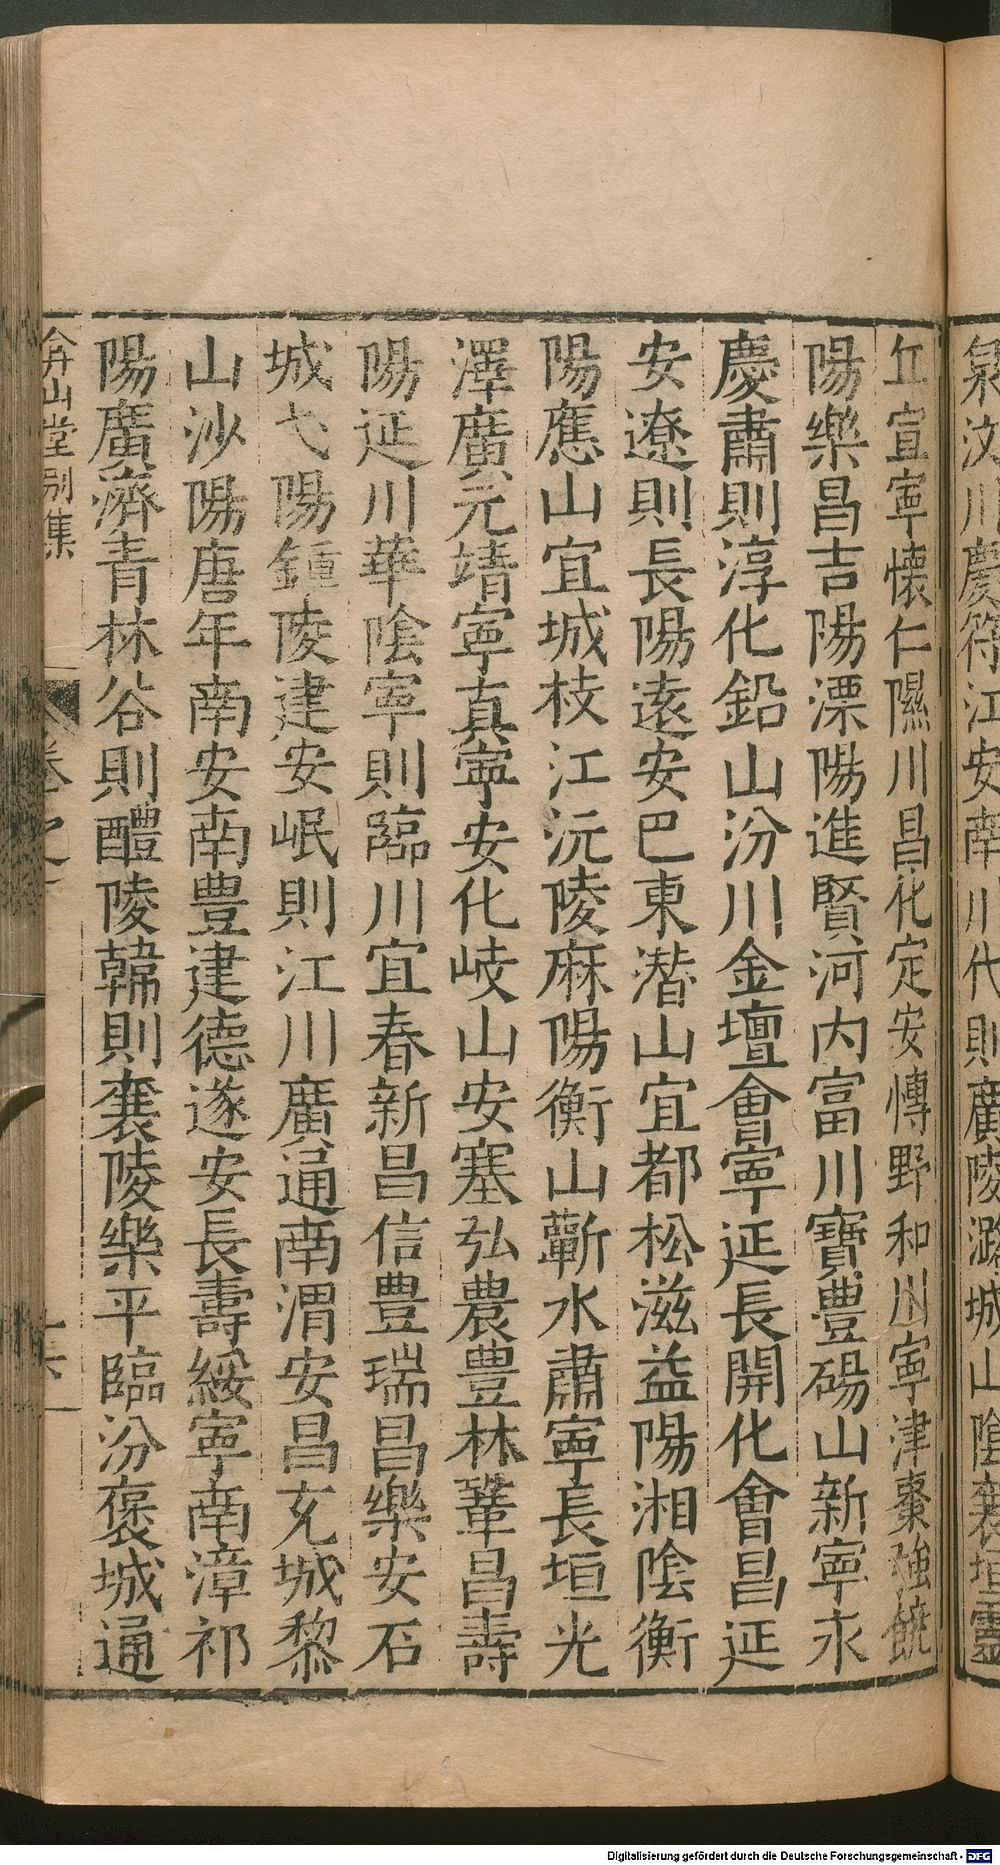 泉汶川慶符江安南川代則廣陵潞城山陰襄垣靈
丘宣寧懷仁隰川昌化定安博野和川寧津棗強饒
陽樂昌吉陽溧陽進賢河内富川寶豊碭山新寧永
慶肅則淳化鉛山汾川金壇會寧延長開化會昌延
安遼則長陽遠安巴東潜山宜都松滋益陽湘陰衡
陽應山宜城枝江沅陵麻陽衡山蘄水肅寧長垣光
澤廣元靖寧真寧安化岐山安塞弘農豊林鞏昌壽
陽延川華陰寧則臨川宜春新昌信豊瑞昌樂安石
城弋陽鍾陵建安岷則江川廣通南渭安昌充城黎
山沙陽唐年南安南豊建德遂安長壽綏寧南漳祁
陽廣濟青林谷則醴陵韓則襄陵樂平臨汾褒城通
弇山堂别集
Digitalisierung gefördert durch die Deutsche Forschungsgemeinschaft - DFG